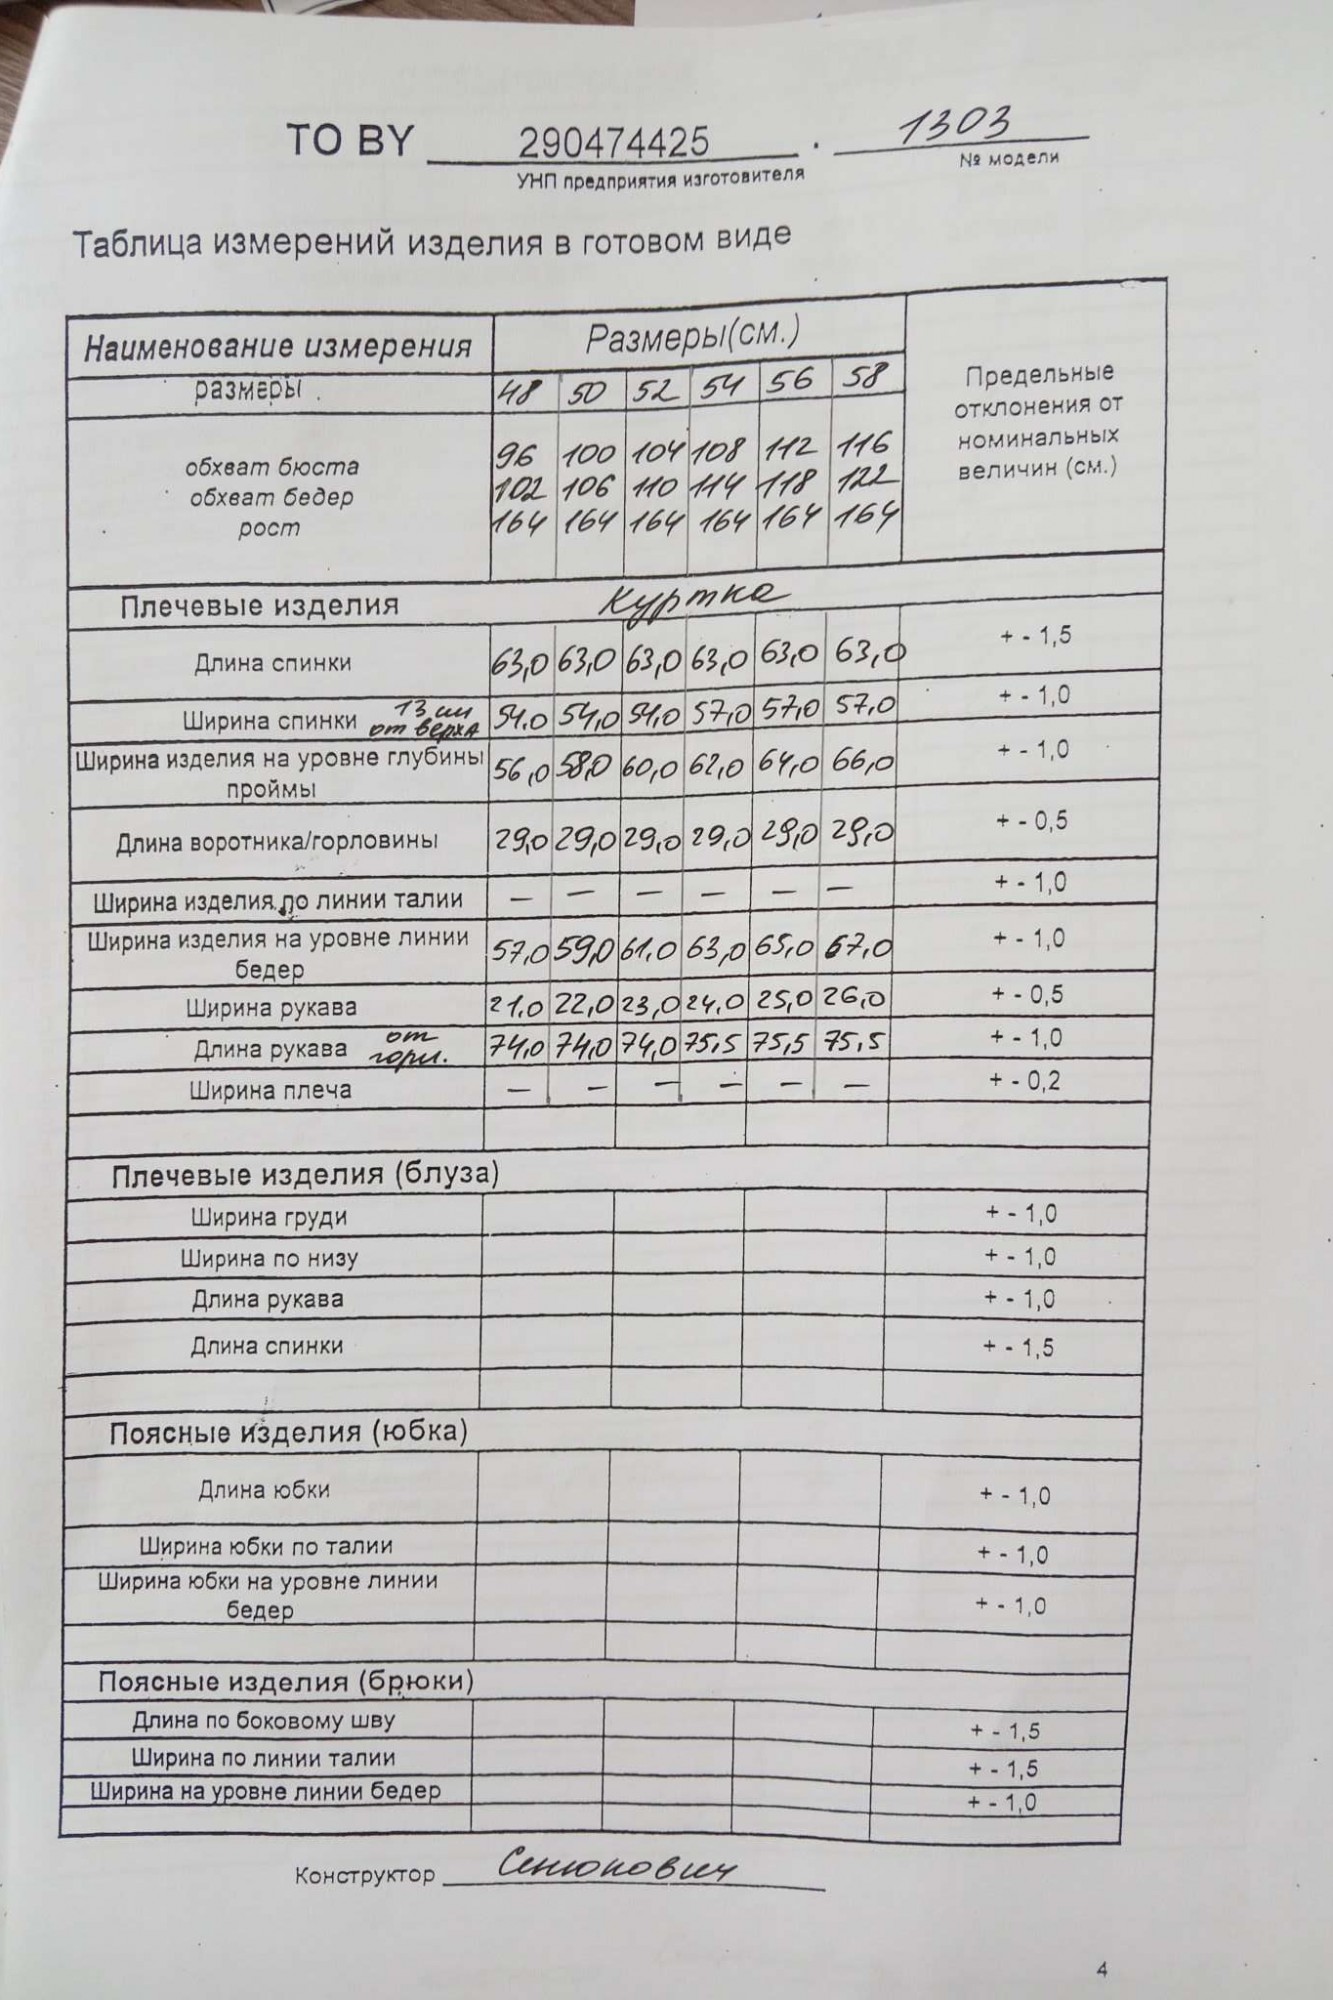 ТО BY 290474425 . 1303
УНП предприятия изготовителя № модели
Таблица измерений изделия в готовом виде
Наименование измерения Размеры(см.) Предельные отклонения от номинальных величин (см.)
размеры 48 50 52 54 56 58
обхват бюста 96 100 104 108 112 116
обхват бедер 102 106 110 114 118 122
рост 164 164 164 164 164 164
Плечевые изделия Куртка
Длина спинки 63,0 63,0 63,0 63,0 63,0 63,0 + - 1,5
Ширина спинки 13 см от верха 54.0 54,0 54,0 57,0 57,0 57,0 + - 1,0
Ширина изделия на уровне глубины проймы 56,0 58,0 60,0 62,0 64,0 66,0 + - 1,0
Длина воротника/горловины 29,0 29,0 29,0 29,0 29,0 29,0 + - 0,5
Ширина изделия по линии талии – – – – – – + - 1,0
Ширина изделия на уровне линии бедер 57,0 59,0 61,0 63,0 65,0 67,0 + - 1,0
Ширина рукава 21,0 22,0 23,0 24,0 25,0 26,0 + - 0,5
Длина рукава от горл. 74,0 74,0 74,0 75,5 75,5 75,5 + - 1,0
Ширина плеча – – – – – – + - 0,2
Плечевые изделия (блуза)
Ширина груди + - 1,0
Ширина по низу + - 1,0
Длина рукава + - 1,0
Длина спинки + - 1,5
Поясные изделия (юбка)
Длина юбки + - 1,0
Ширина юбки по талии + - 1,0
Ширина юбки на уровне линии бедер + - 1,0
Поясные изделия (брюки)
Длина по боковому шву + - 1,5
Ширина по линии талии + - 1,5
Ширина на уровне линии бедер + - 1,0
Конструктор Сенюкович
4